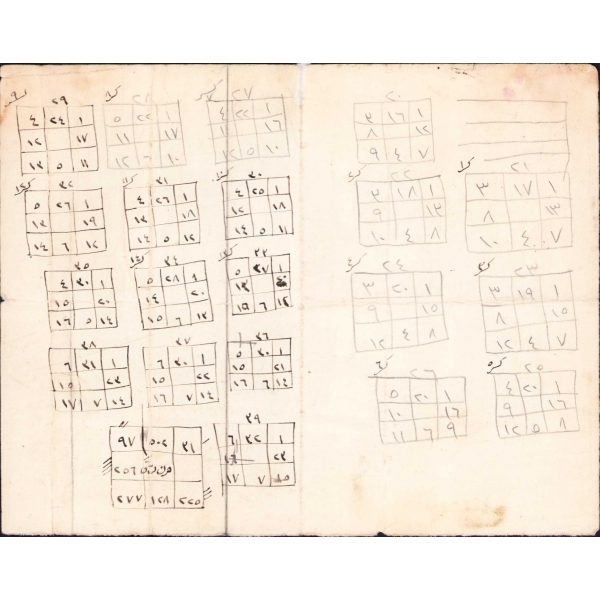 ٢٠
١ ١٦ ٣
١٢ ٨
٧ ٤ ٩
٢١
١ ١٧ ٣
١٣ ٨
٧ ٤ ١٠
٢٢
١ ١٨ ٣
١٣ ٩
٨ ٤ ١٠
٢٣
١ ١٩ ٣
١٥ ٨
٧ ٤ ١٢
٢٤
١ ٢٠ ٣
١٥ ٩
٨ ٤ ١٢
٢٥
١ ٢٠ ٤
١٦ ٩
٨ ٥ ١٢
٢٦
١ ٢٠ ٥
١٦ ١٠
٩ ٦ ١١
٢٧
١ ٢٢ ٤
١٦
١٠ ٥ ١٢
٢٨
١ ٢٢ ٥
١٧ ١١
١٠ ٦ ١٢
٢٩
١ ٢٤ ٤
١٧ ١٢
١١ ٥ ١٣
٣٠
١ ٢٥ ٤
١٨ ١٢
١١ ٥ ١٤
٣١
١ ٢٦ ٤
١٨ ١٣
١٢ ٥ ١٤
٣٢
١ ٢٦ ٥
١٩ ١٣
١٢ ٦ ١٤
٣٣
١ ٢٧ ٥
١٣
١٢ ٦ ١٥
٣٤
١ ٢٨ ٥
٢٠ ١٤
١٣ ٦ ١٥
٣٥
١ ٣٠ ٤
٢٠ ١٥
١٤ ٥ ١٦
٣٦
١ ٣٠ ٥
٢١ ١٥
١٤ ٦ ١٦
٣٧
١ ٣٠ ٦
٢٢ ١٥
١٤ ٧ ١٦
٣٨
١ ٣١ ٦
٢٣ ١٥
١٤ ٧ ١٧
٣٩
١ ٣٢ ٦
٢٣ ١٦
١٥ ٧ ١٧
٣١ ٥٠٢ ٩٧
٢٥٦
٢٢٥ ١٢٨ ٢٧٧